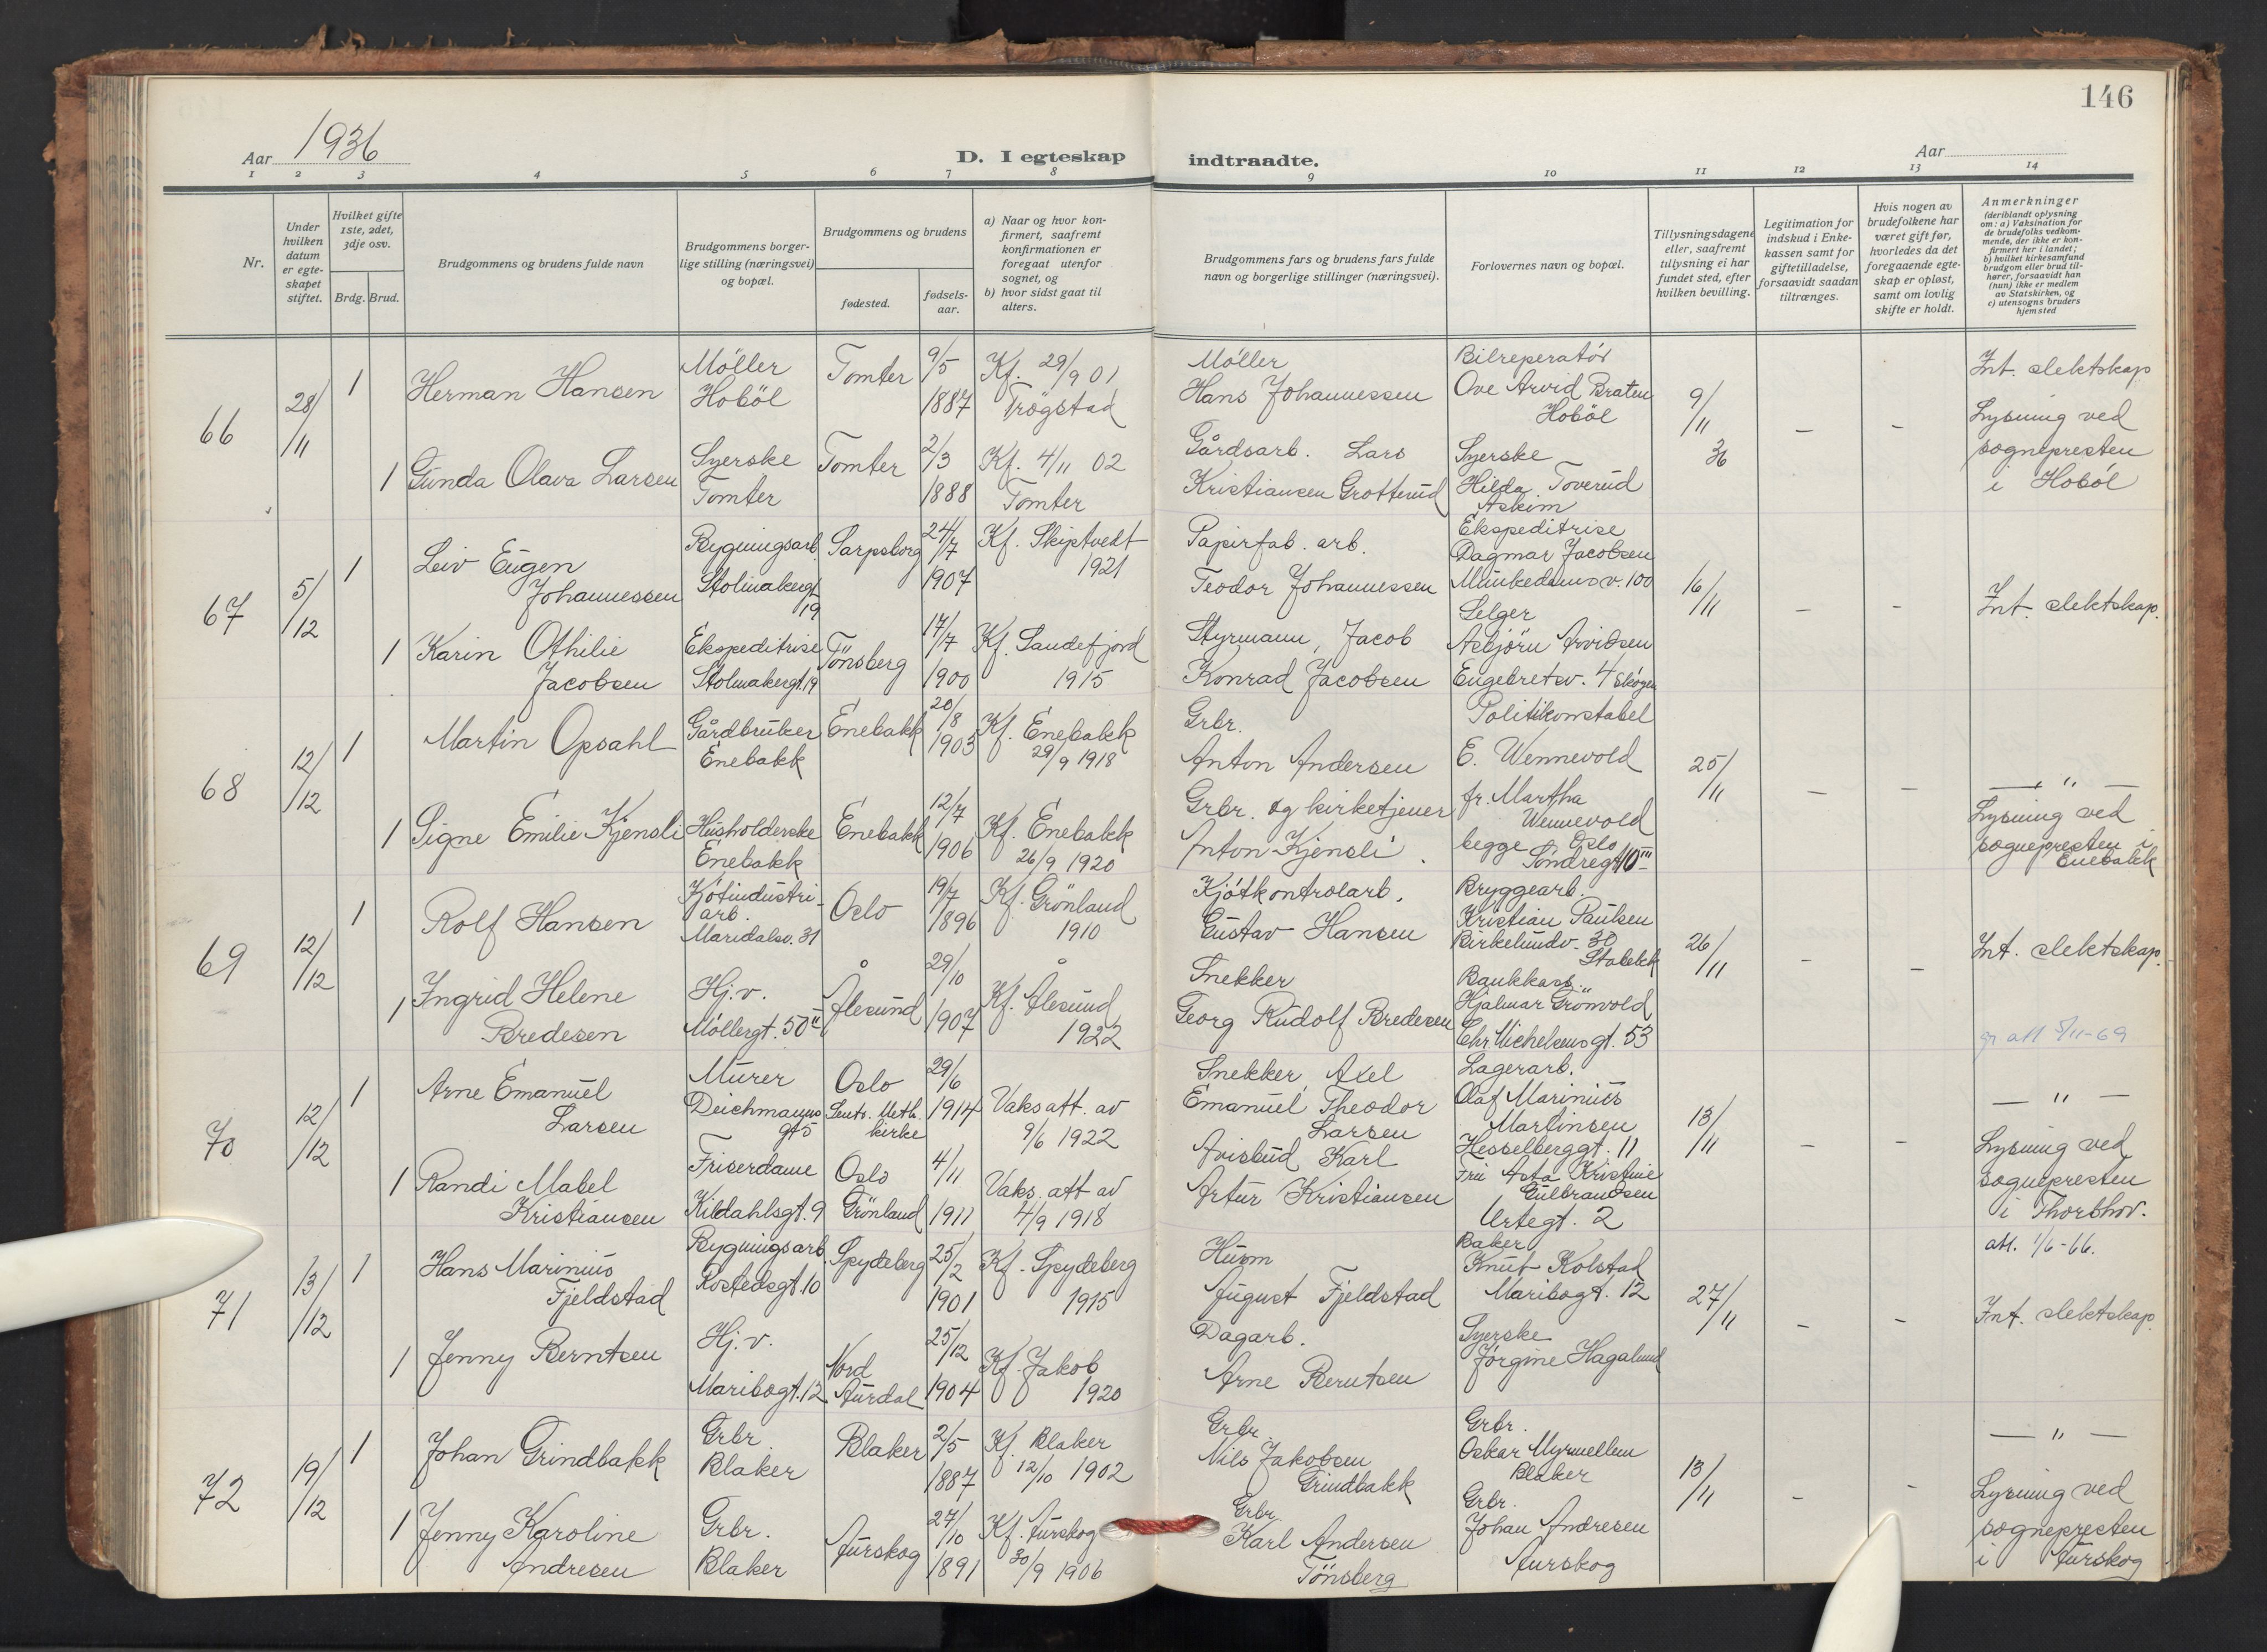 146
Aar 1936
D. I egteskap indtraadte.
Aar
1 2 3 4 5 6 7 8 9 10 11 12 13 14
Nr.
Under
hvilken
datum
er egte-
skapet
stiftet.
Hvilket gifte
1ste, 2det,
3dje osv.
Brdg. Brud.
Brudgommens og brudens fulde navn
Brudgommens borger-
lige stilling (næringsvei)
og bopæl.
Brudgommens og brudens
fødested.
fødsels-
aar.
a) Naar og hvor kon-
firmert, saafremt
konfirmationen er
foregaat utenfor
sognet, og
b) hvor sidst gaat til
alters.
Brudgommens fars og brudens fars fulde
navn og borgerlige stillinger (næringsvei).
Forlovernes navn og bopæl.
Tillysningsdagene
eller, saafremt
tillysning ei har
fundet sted, efter
hvilken bevilling.
Legitimation for
indskud i Enke-
kassen samt for
giftetilladelse,
forsaavidt saadan
tiltrænges.
Hvis nogen av
brudefolkene har
været gift før,
hvorledes da det
foregaaende egte-
skap er opløst,
samt om lovlig
skifte er holdt.
Anmerkninger
(deriblandt oplysning
om: a) Vaksination for
de brudefolks vedkom-
mende, der ikke er kon-
firmert her i landet;
b) hvilket kirkesamfund
brudgom eller brud til-
hører, forsaavidt han
(hun) ikke er medlem
av Statskirken, og
c) utensogns bruders
hjemsted
66
28/
11
1
Herman Hansen
Möller
Hoböl
Tomter
9/5
1887
Kf. 29/9 01
Trögstad
Möller
Hans Johannessen
Bilreperatör
Ove Arvid Braten
Hoböl
9/
11
36
–
–
Int. slektskap
Lysning ved
sognepresten
i Hoböl
1
Gunda Olava Larsen
Syerske
Tomter
Tomter
2/3
1888
Kf. 4/11 02
Tomter
Gårdsarb. Lars
Kristiansen Grotterud
Syerske
Hilda Toverud
Askim
67
5/
12
1
Leiv Eugen
Johannessen
Bygningsarb.
Stolmakergt
19
Sarpsborg
24/7
1907
Kf. Skiptvedt
1921
Papirfab. arb.
Teodor Johannessen
Ekspeditrise
Dagmar Jacobsen
Munkedamsv. 100
16/
11
–
–
Int. slektskap.
1
Karin Othilie
Jacobsen
Ekspeditrise
Stolmakergt. 19
Tönsberg
17/7
1900
Kf. Sandefjord
1915
Styrmann, Jacob
Konrad Jacobsen
Selger
Asbjörn Arvidsen
Engebretsv. 4 Sköyen
68
12/
12
1
Martin Opsahl
Gårdbruker
Enebakk
Enebakk
20/8
1903
Kf. Enebakk
29/9 1918
Grbr.
Anton Andersen
Politikonstabel
E. Wennevold
25/
11
–
–
— " —
Lysning ved
sognepresten i
Enebakk
1
Signe Emilie Kjensli
Husholderske
Enebakk
Enebakk
12/7
1906
Kf. Enebakk
26/9 1920
Grbr. og kirketjener
Anton Kjensli
fr. Martha
Wennevold
begge Oslo
Söndregt 10 III
69
12/
12
1
Rolf Hansen
Kjötindustri-
arb.
Maridalsv. 31
Oslo
19/7
1896
Kf. Grönland
1910
Kjötkontrolarb.
Gustav Hansen
Bryggearb.
Kristian Paulsen
Birkelundv. 30
Stabekk
26/
11
–
–
Int. slektskap.
1
Ingrid Helene
Bredesen
Hj. v.
Möllergt. 50 II
Ålesund
29/10
1907
Kf. Ålesund
1922
Snekker
Georg Rudolf Bredesen
Bankkass.
Hjalmar Grönvold
Chr. Michelsens gt. 53
gr. att 5/11-69
70
12/
12
1
Arne Emanuel
Larsen
Murer
Deichmanns
gt 5
Oslo
Sentr. Meth.
kirke
29/6
1914
Vaks att. av
9/6 1922
Snekker Axel
Emanuel Theodor
Larsen
Lagerarb.
Olaf Marinius
Martinsen
Hesselberggt. 11
13/
11
–
–
— " —
Lysning ved
sognepresten
i Thorshov.
1
Randi Mabel
Kristiansen
Friserdame
Kildahlsgt. 9
Oslo
Grönland
4/11
1911
Vaks. att av
4/9 1918
Avisbud Karl
Artur Kristiansen
Fru Asta Kristine
Gulbrandsen
Urtegt. 2
att. 1/6-66.
71
13/
12
1
Hans Marinius
Fjeldstad
Bygningsarb.
Rostedsgt. 10
Spydeberg
25/2
1901
Kf. Spydeberg
1915
Husm
August Fjeldstad
Baker
Knut Kolstad
Maribogt. 12
27/
11
–
–
Int. slektskap.
1
Jenny Berntsen
Hj. v.
Maribogt. 12
Nord
Aurdal
25/12
1904
Kf. Jakob
1920
Dagarb.
Arne Berntsen
Syerske
Jörgine Hagalund
72
19/
12
1
Johan Grindbakk
Grbr.
Blaker
Blaker
2/5
1887
Kf. Blaker
12/10 1902
Grbr.
Nils Jakobsen
Grindbakk
Grbr.
Oskar Myrmellem
Blaker
13/
11
–
–
— " —
Lysning ved
sognepresten
i Aurskog
1
Jenny Karoline
Andresen
Grbr.
Blaker
Aurskog
27/10
1891
Kf. Aurskog
30/9 1906
Grbr.
Karl Andersen
Tönsberg
Grbr.
Johan Andresen
Aurskog